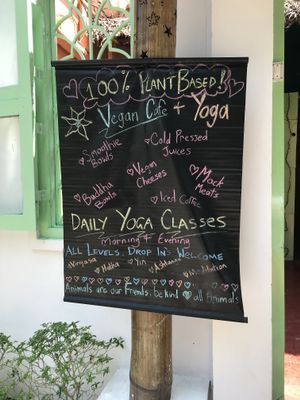 100% PLANTBASED!
Vegan Café + Yoga
Smoothie Bowls
Cold Pressed Juices
Vegan Cheeses
Buddha Bowls
Mock Meats
Iced Coffee
DAILY YOGA CLASSES
Morning + Evening
ALL LEVELS, DROP INS WELCOME
Vinyasa Hatha Yin Ashtanga Meditation
Animals are our Friends, be kind all animals